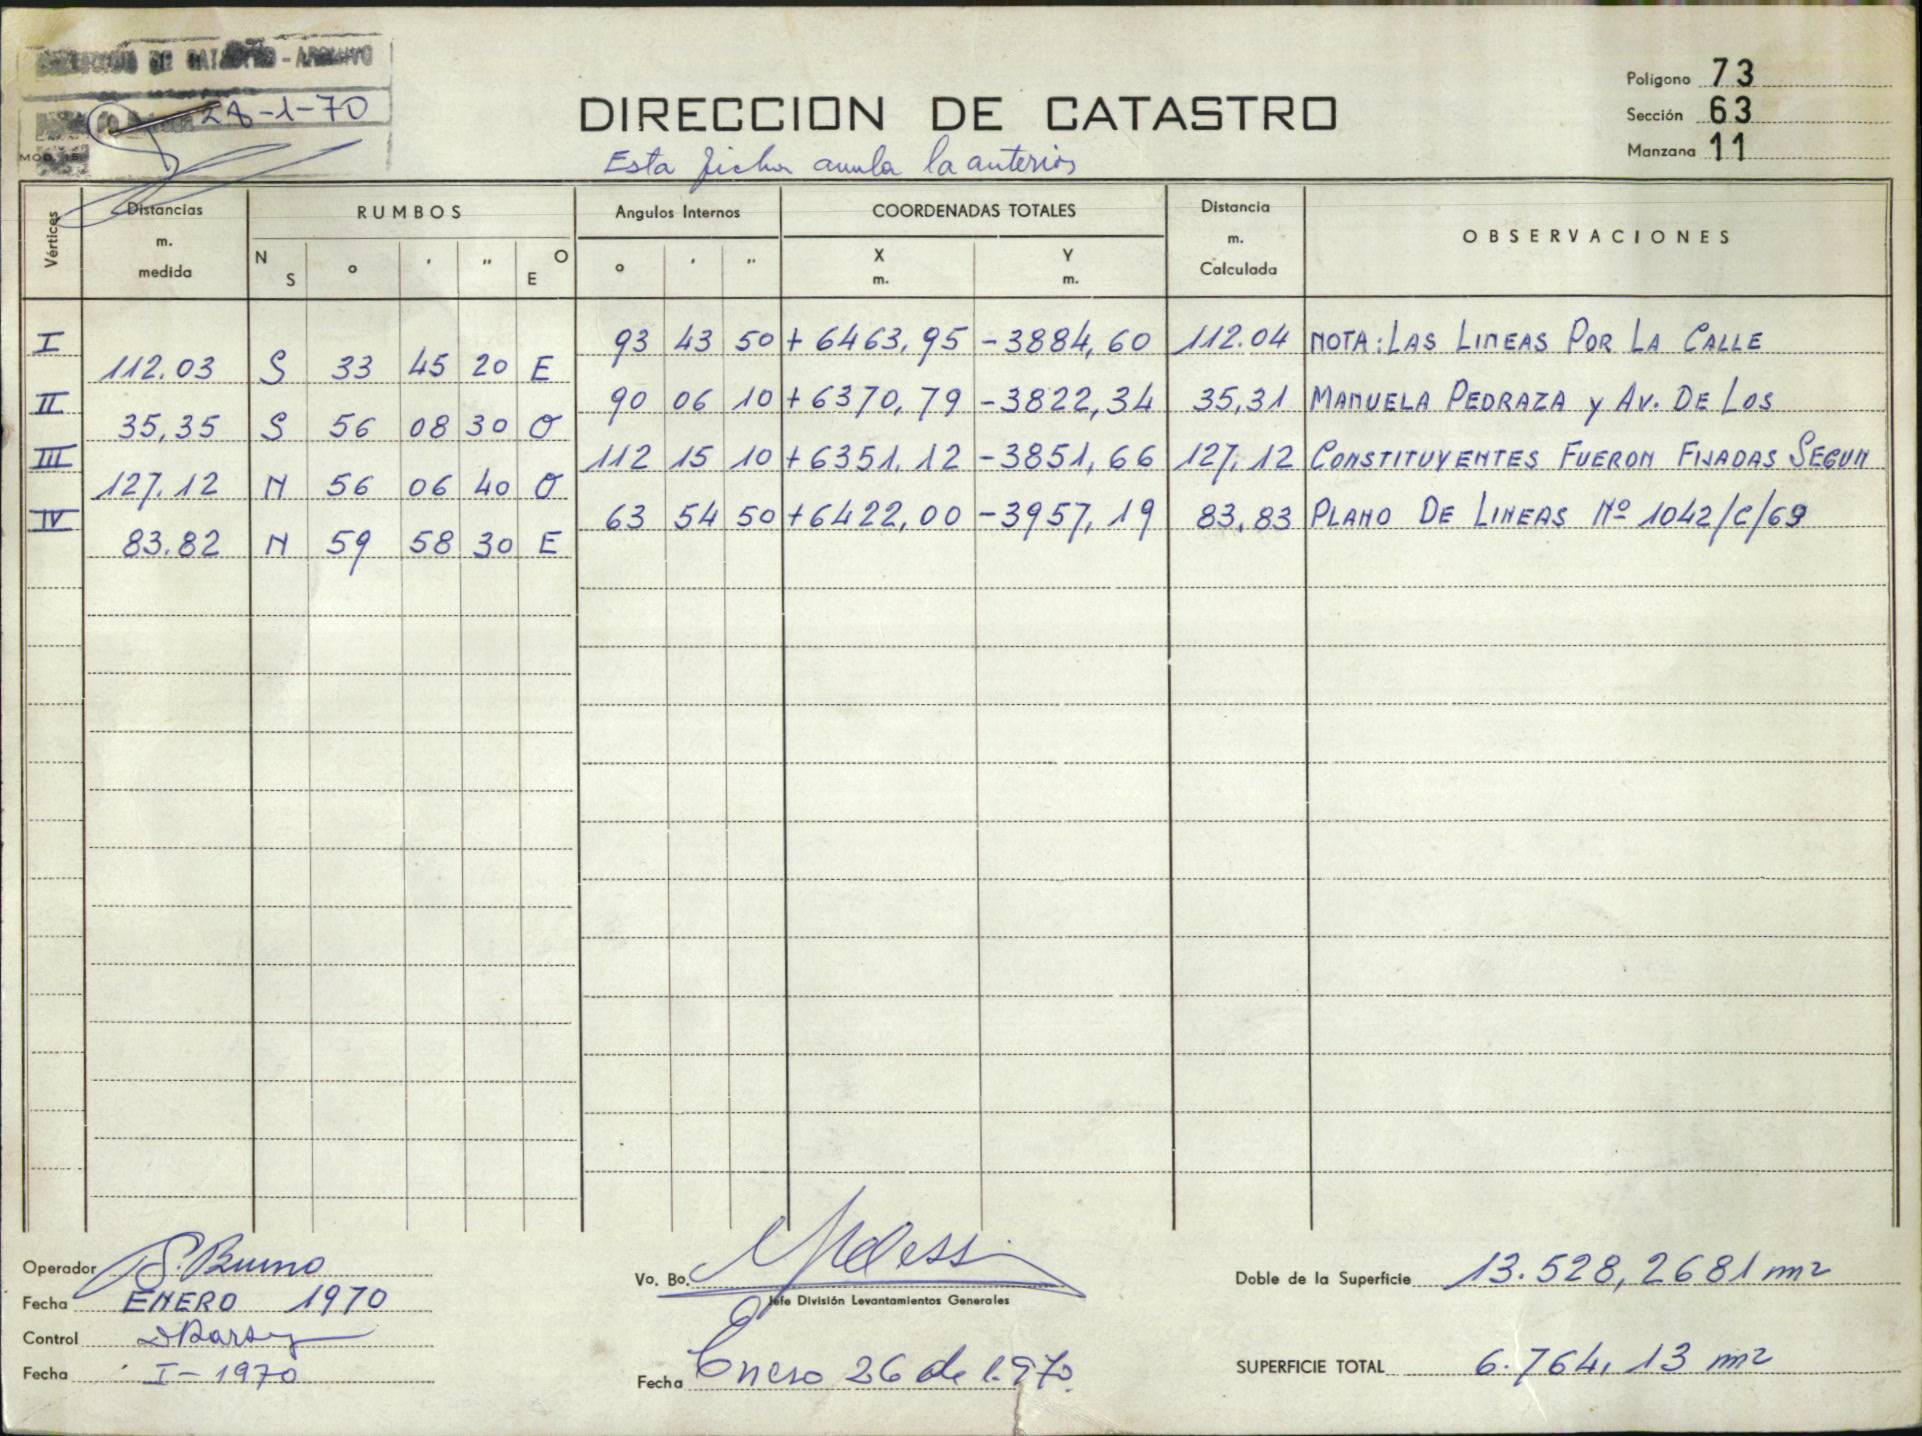 DIRECCION DE CATASTRO - ARCHIVO
28-1-70
MOD. 15
DIRECCION DE CATASTRO
Esta ficha anula la anterior
Polígono 73
Sección 63
Manzana 11
Vértices
Distancias m. medida
RUMBOS
N S ° ' " O E
Angulos Internos
° ' "
COORDENADAS TOTALES
X m. Y m.
Distancia m. Calculada
OBSERVACIONES
I 93 43 50 +6463,95 -3884,60 112.04 NOTA: LAS LINEAS POR LA CALLE
112.03 S 33 45 20 E
II 90 06 10 +6370,79 -3822,34 35,31 MANUELA PEDRAZA y AV. DE LOS
35,35 S 56 08 30 O
III 112 15 10 +6351,12 -3851,66 127,12 CONSTITUYENTES FUERON FIJADAS SEGUN
127,12 N 56 06 40 O
IV 63 54 50 +6422,00 -3957,19 83,83 PLANO DE LINEAS Nº 1042/C/69
83.82 N 59 58 30 E
Operador S. Bruno
Fecha ENERO 1970
Control
Fecha I-1970
Vo. Bo.
Jefe División Levantamientos Generales
Fecha Enero 26 de 1.970
Doble de la Superficie 13.528,2681 m2
SUPERFICIE TOTAL 6.764,13 m2